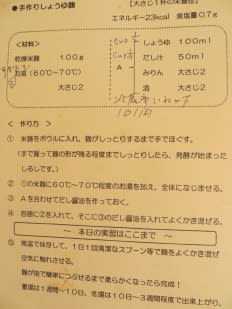 【大さじ1杯の米麹使
●手作りしょうゆ麹
エネルギー23kcal 食塩量0.7g
<材料>
乾燥米麹 100g
お湯(60℃~70℃)
大さじ2
A
しょうゆ 100ml
だし汁 50ml
みりん 大さじ2
酒 大さじ2
1日1回
< 作り方 >
① 米麹をボウルに入れ、麹がしっとりするまで手でほぐす。
(手で握って麹の形が残る程度までしっとりしたら、発酵が始まった
しるしです。)
② ①の米麹に60℃~70℃程度のお湯を加え、全体になじませる。
③ Aを合わせてだし醤油を作っておく。
④ 容器に②を入れて、そこに③のだし醤油を入れてよくかき混ぜる。
~ 本日の実習はここまで ~
⑤ 常温で保存して、1日1回清潔なスプーン等で麹をよくかき混ぜ
空気に触れさせる。
麹が指で簡単につぶせるまで柔らかくなったら完成!
夏場は1週間~10日、冬場は10日~3週間程度で出来上がり。